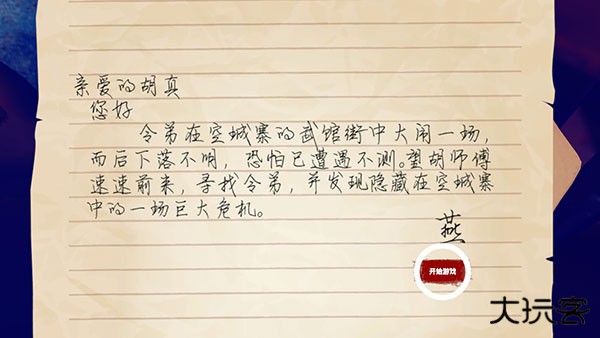 亲爱的胡真
您好
令弟在空城寨的武馆街中大闹一场，
而后下落不明，恐怕已遭遇不测。望胡师傅
速速前来，寻找令弟，并发现隐藏在空城寨
中的一场巨大危机。
燕
开始游戏
大玩客